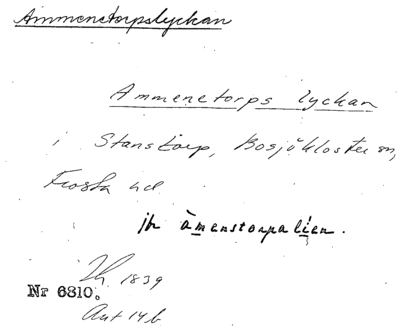 Ammenetorpslyckan
Ammenetorps lyckan
i Stanstorp, Bosjökloster sn,
Frosta hd
jfr åmenstorpalien.
Lh. 1839
Nr 6810.
Akt 14b